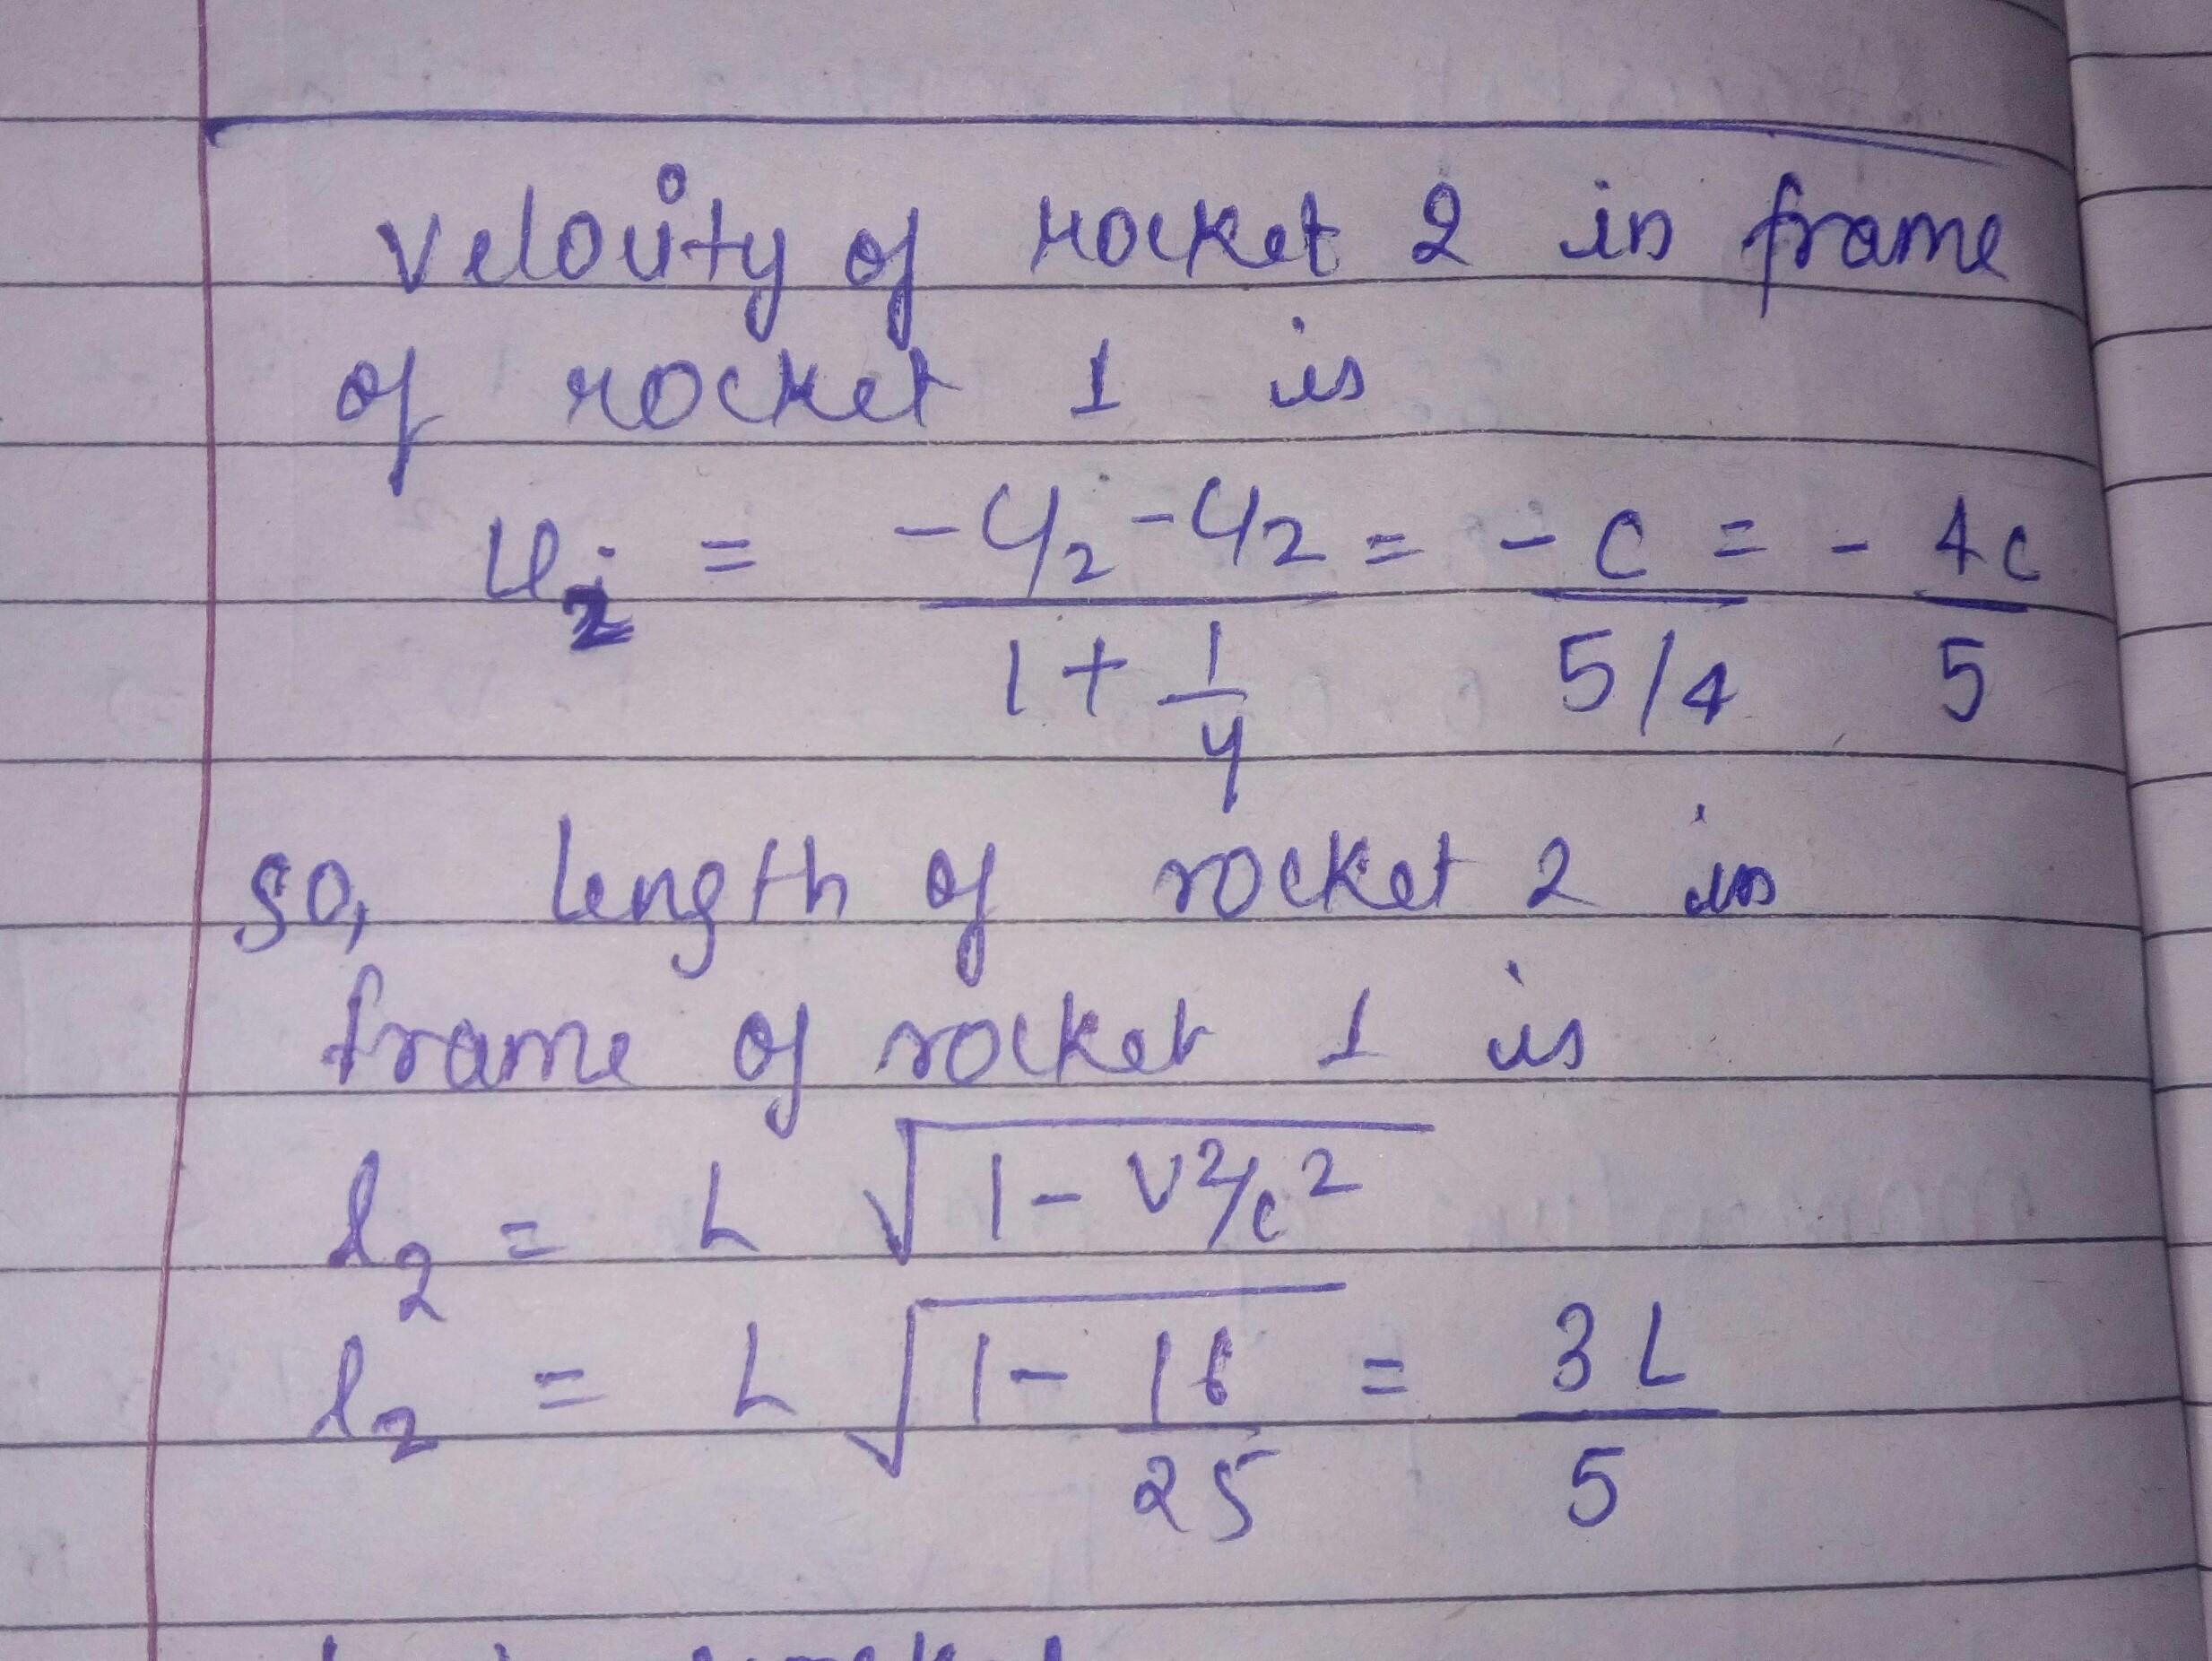 velocity of rocket 2 in frame
of rocket 1 is
u₂ = (-c/2 - c/2) / (1 + 1/4) = -c / (5/4) = -4c/5
so, length of rocket 2 in
frame of rocket 1 is
l₂ = L √(1 - v²/c²)
l₂ = L √(1 - 16/25) = 3L/5